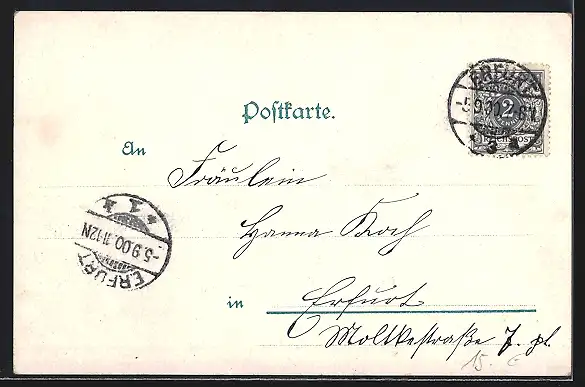 ERFURT
5.9.00
2
Postkarte.
An
Fräulein
Hanna Koch
* 1 *
-5.9.00.11-12N
ERFURT
in Erfurt
Moltkestraße 7. pl.
15.